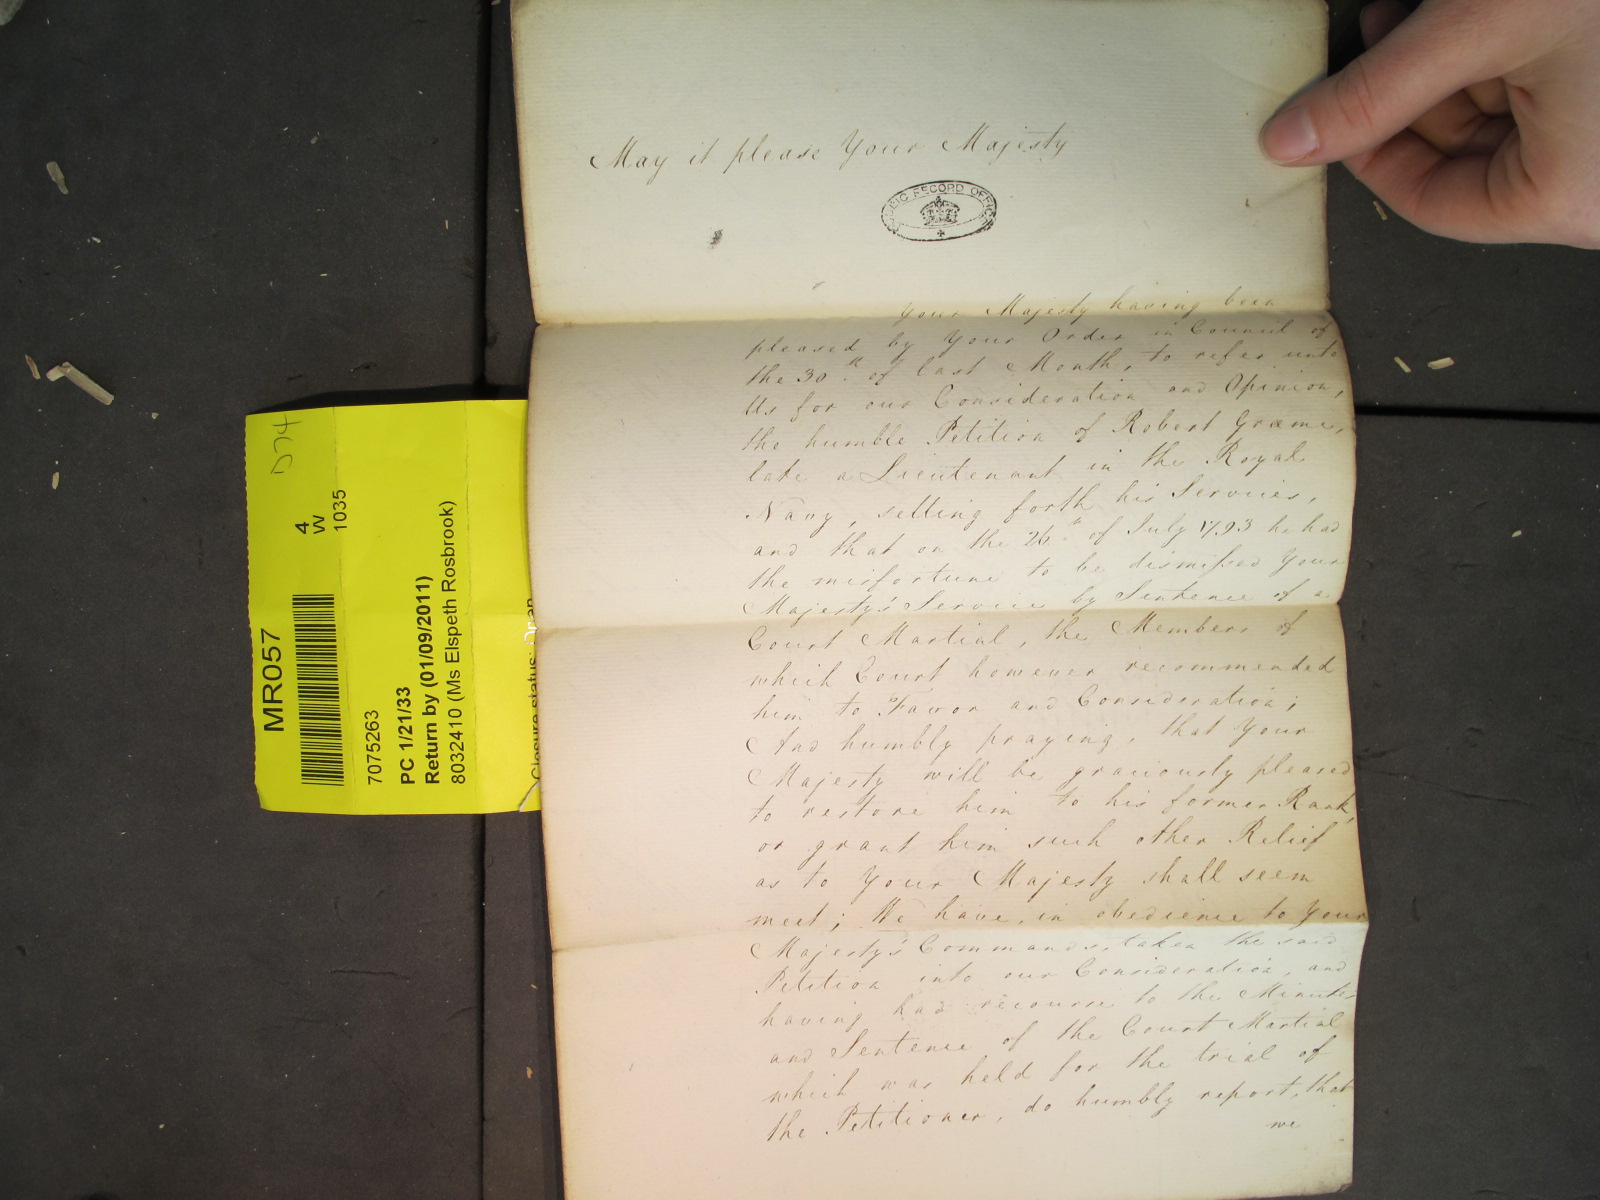 May it please Your Majesty
PUBLIC RECORD OFFICE
Your Majesty having been
pleased by Your Order in Council of
the 30.th of last Month, to refer unto
Us for our Consideration and Opinion,
the humble Petition of Robert Græme,
late a Lieutenant in the Royal
Navy, setting forth his Services,
and that on the 26.th of July 1793 he had
the misfortune to be dismissed Your
Majesty's Service by Sentence of a
Court Martial, the Members of
which Court however recommended
him to Favor and Consideration;
And humbly praying, that Your
Majesty will be graciously pleased
to restore him to his former Rank,
or grant him such other Relief
as to Your Majesty shall seem
meet; We have, in obedience to Your
Majesty's Commands, taken the said
Petition into our Consideration, and
having had recourse to the Minutes
and Sentence of the Court Martial
which was held for the trial of
the Petitioner, do humbly report, that
we
MR057
4
W
1035
D74
7075263
PC 1/21/33
Return by (01/09/2011)
8032410 (Ms Elspeth Rosbrook)
Closure status: Open